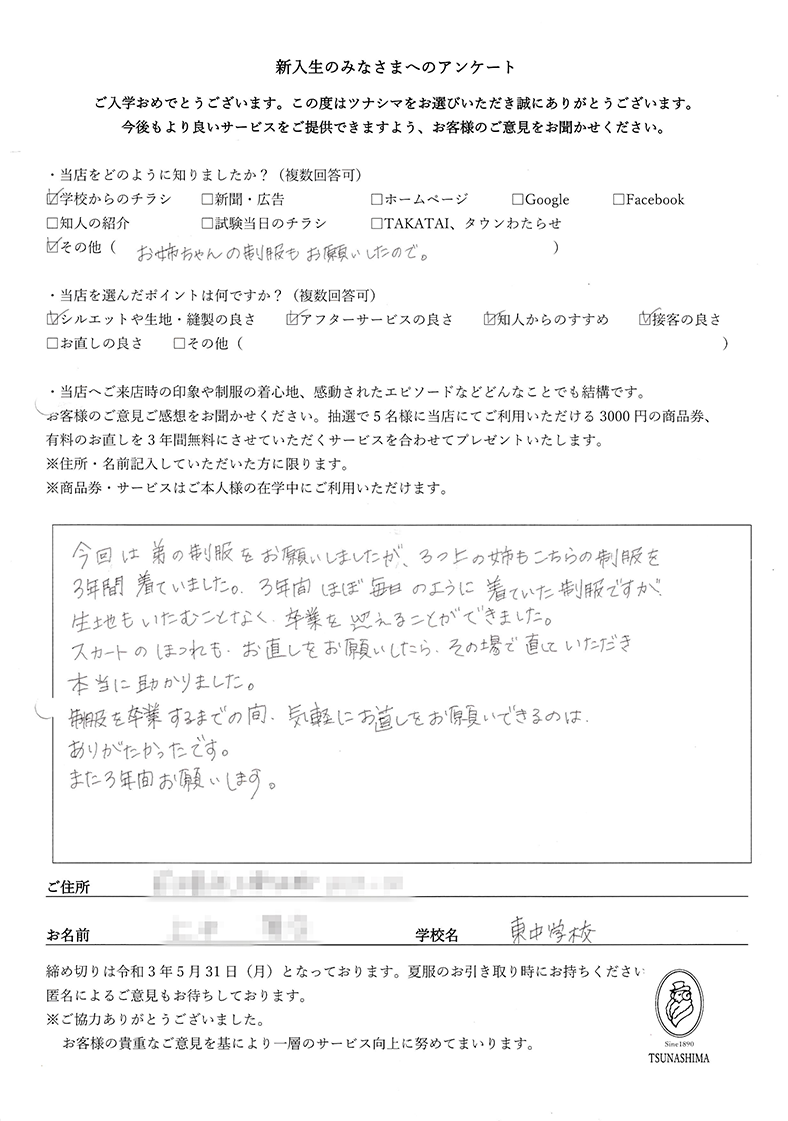 新入生のみなさまへのアンケート
ご入学おめでとうございます。この度はツナシマをお選びいただき誠にありがとうございます。
今後もより良いサービスをご提供できますよう、お客様のご意見をお聞かせください。
・当店をどのように知りましたか？（複数回答可）
☑学校からのチラシ □新聞・広告 □ホームページ □Google □Facebook
□知人の紹介 □試験当日のチラシ □TAKATAI、タウンわたらせ
☑その他（ お姉ちゃんの制服もお願いしたので。 ）
・当店を選んだポイントは何ですか？（複数回答可）
☑シルエットや生地・縫製の良さ ☑アフターサービスの良さ ☑知人からのすすめ ☑接客の良さ
□お直しの良さ □その他（ ）
・当店へご来店時の印象や制服の着心地、感動されたエピソードなどどんなことでも結構です。
お客様のご意見ご感想をお聞かせください。抽選で5名様に当店にてご利用いただける3000円の商品券、
有料のお直しを3年間無料にさせていただくサービスを合わせてプレゼントいたします。
※住所・名前記入していただいた方に限ります。
※商品券・サービスはご本人様の在学中にご利用いただけます。
今回は弟の制服をお願いしましたが、3つ上の姉もこちらの制服を
3年間着ていました。3年間ほぼ毎日のように着ていた制服ですが、
生地もいたむことなく、卒業を迎えることができました。
スカートのほつれも、お直しをお願いしたら、その場で直していただき
本当に助かりました。
制服を卒業するまでの間、気軽にお直しをお願いできるのは、
ありがたかったです。
また3年間お願いします。
ご住所
お名前 学校名 東中学校
締め切りは令和3年5月31日（月）となっております。夏服のお引き取り時にお持ちください
匿名によるご意見もお待ちしております。
※ご協力ありがとうございました。
お客様の貴重なご意見を基により一層のサービス向上に努めてまいります。
Sine1890
TSUNASHIMA